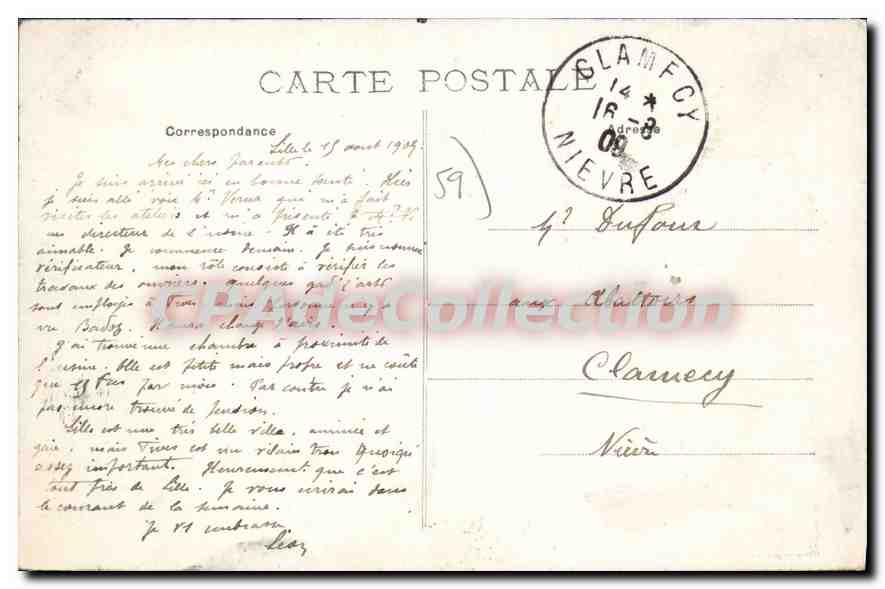 CARTE POSTALE
Correspondance
Adresse
CLAMECY
14 *
16 - 8
09
NIEVRE
59
Lille le 15 aout 1909
Mes chers parents.
Je suis arrivé ici en bonne santé. Hier
je suis allé voir Mr qui m'a fait
visiter les ateliers et m'a présenté à
un directeur de l'usine. Il a été très
aimable. Je commence demain. Je suis nommé
vérificateur, mon rôle consiste à vérifier les
travaux des ouvriers. Quelques gad'zarts
sont employés à Fives, mais personne n'a
vu Badoz. Il aura changé d'airs.
J'ai trouvé une chambre à proximité de
l'usine. Elle est petite mais propre et ne coûte
que 15 Frs par mois. Par contre je n'ai
pas encore trouvé de pension.
Lille est une très belle ville, animée et
gaie, mais Fives est un vilain trou quoique
assez important. Heureusement que c'est
tout près de Lille. Je vous écrirai dans
le courant de la semaine.
Je vs embrasse
Léon
Mr Dufour
aux abattoirs
Clamecy
Nièvre
CPAdeCollection